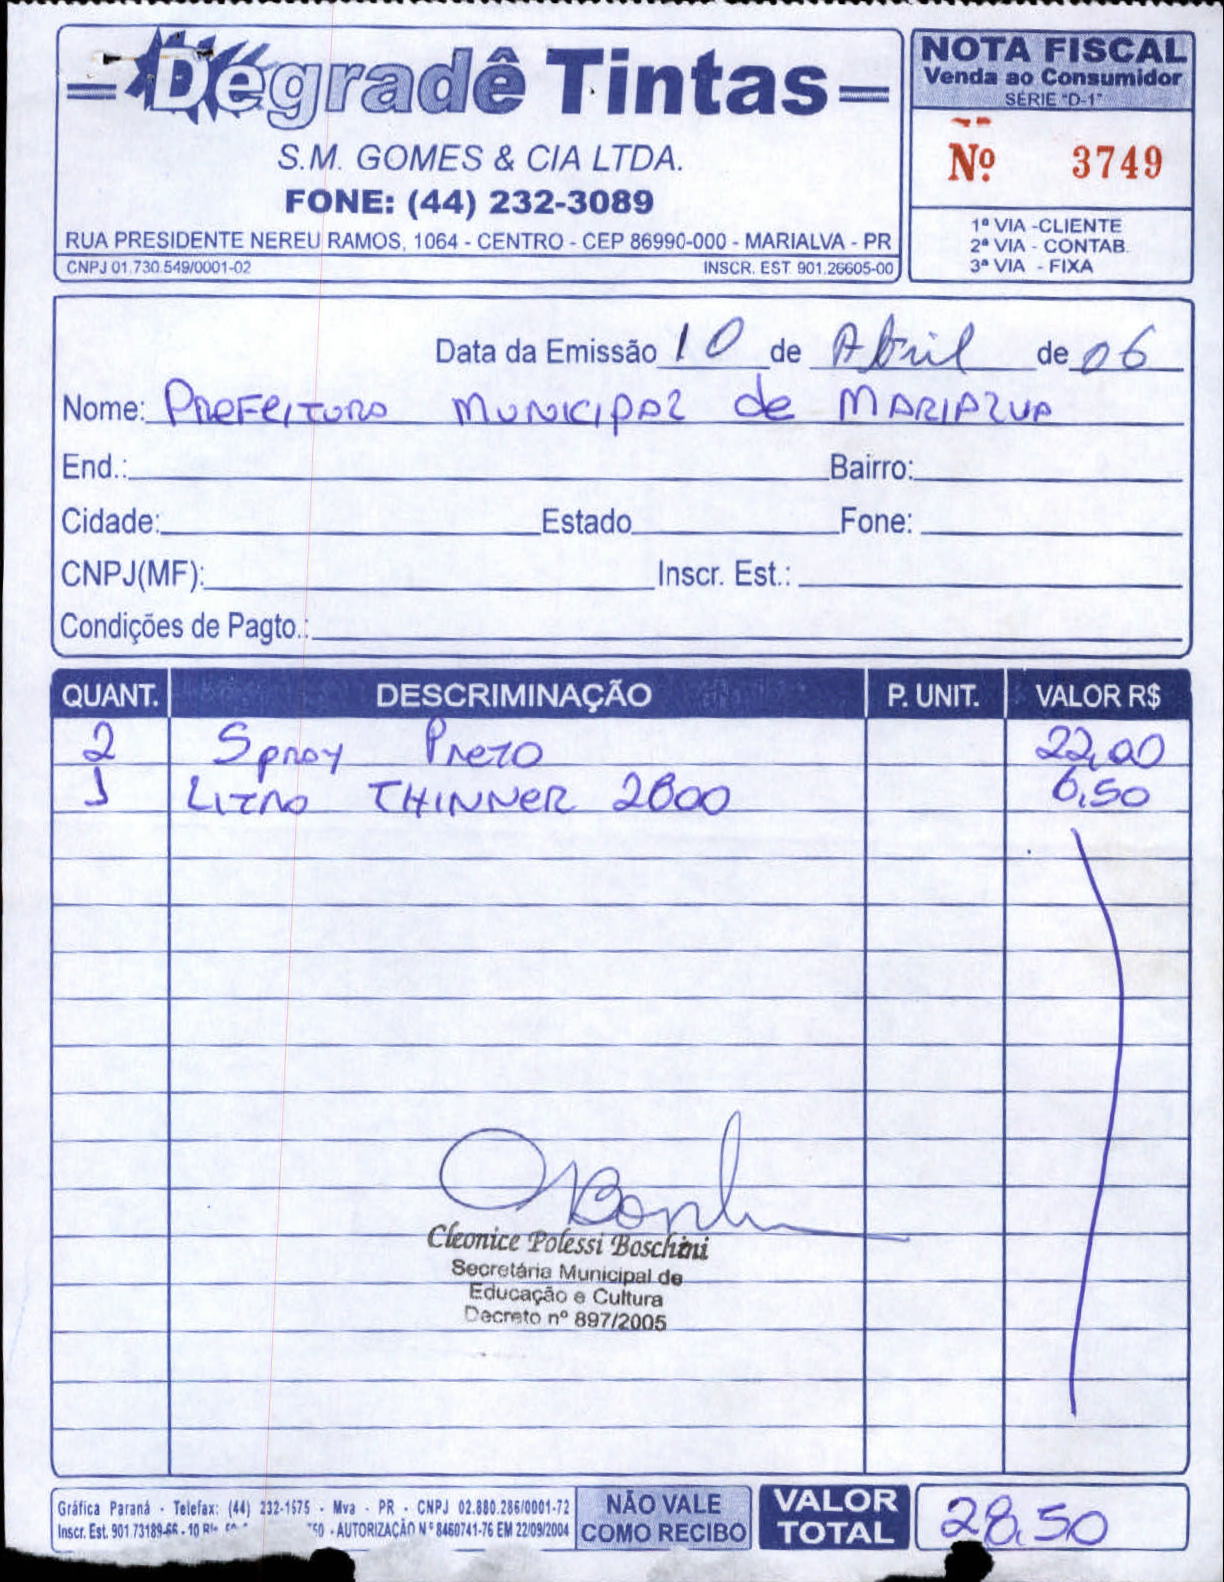 Degradê Tintas
S.M. GOMES & CIA LTDA.
FONE: (44) 232-3089
RUA PRESIDENTE NEREU RAMOS, 1064 - CENTRO - CEP 86990-000 - MARIALVA - PR
CNPJ 01.730.549/0001-02 INSCR. EST. 901.26605-00
NOTA FISCAL
Venda ao Consumidor
SÉRIE "D-1"
Nº 3749
1ª VIA -CLIENTE
2ª VIA - CONTAB.
3ª VIA - FIXA
Data da Emissão 10 de Abril de 06
Nome: Prefeitura Municipal de Marialva
End.: Bairro:
Cidade: Estado Fone:
CNPJ(MF): Inscr. Est.:
Condições de Pagto.:
QUANT. DESCRIMINAÇÃO P. UNIT. VALOR R$
2 Spray Preto 22,00
1 Litro THINNER 2800 6,50
Cleonice Polessi Boschini
Secretária Municipal de
Educação e Cultura
Decreto nº 897/2005
Gráfica Paraná - Telefax: (44) 232-1575 - Mva - PR - CNPJ 02.880.286/0001-72
Inscr. Est. 901 73189-66 - 10 Bls. - AUTORIZAÇÃO Nº 8460741-76 EM 22/09/2004
NÃO VALE
COMO RECIBO
VALOR
TOTAL
28,50